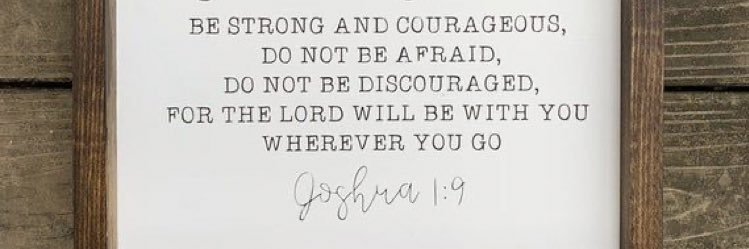 BE STRONG AND COURAGEOUS,
DO NOT BE AFRAID,
DO NOT BE DISCOURAGED,
FOR THE LORD WILL BE WITH YOU
WHEREVER YOU GO
Joshua 1:9